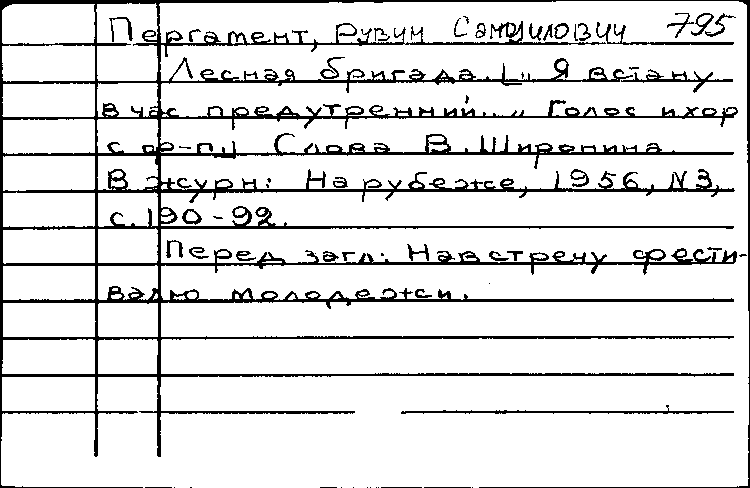 Пергамент, Рувим Самуилович 795
Лесная бригада. [„Я встану
в час предутренний..„ Голос и хор
с ф-п.] Слова В. Широнина.
В журн: На рубеже, 1956, N3,
с. 190-92.
Перед загл: Навстречу фести-
валю молодежи.